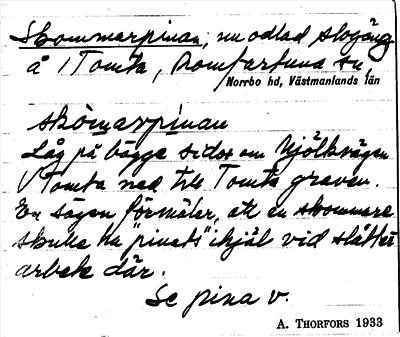 Skommarpinan, nu odlad slogäng
å 1 Tomta, Romfartuna sn,
Norrbo hd, Västmanlands län
skòmarpinan
Låg på bägge sidor om Mjölkvägen
1 Tomta ned till Tomta graven.
En sägen förmäler, att en skommare
skulle ha "pinats" ihjäl vid slåtter
arbete där.
Se pina v.
A. THORFORS 1933